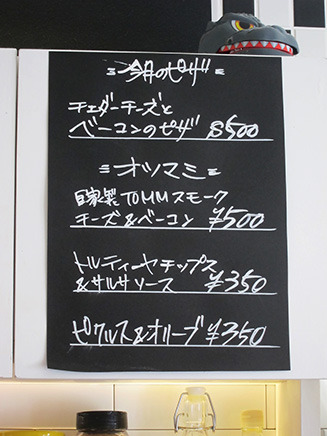 今月のピザ
チェダーチーズと
ベーコンのピザ 8500
オツマミ
自家製TOMMスモーク
チーズ&ベーコン ¥500
トルティーヤチップス
&サルサソース ¥350
ピクルス&オリーブ ¥350